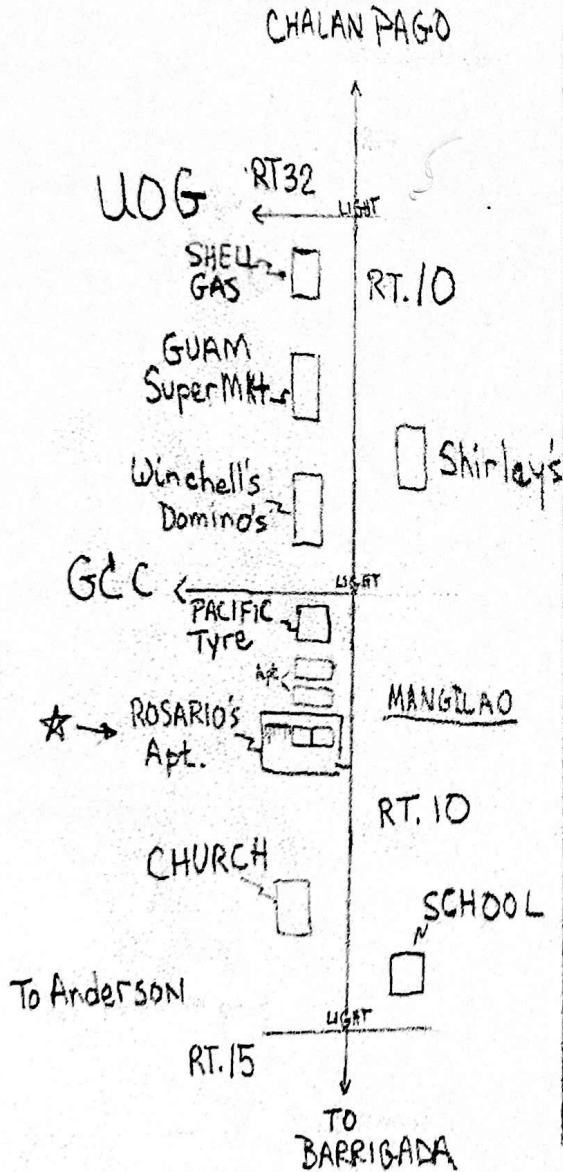 CHALAN PAGO
UOG
RT32
LIGHT
SHELL
GAS
RT.10
GUAM
SuperMkt
Shirley's
Winchell's
Domino's
GCC
LIGHT
PACIFIC
Tyre
Apt.
MANGILAO
ROSARIO's
Apt.
RT.10
CHURCH
SCHOOL
To Anderson
LIGHT
RT.15
TO
BARRIGADA